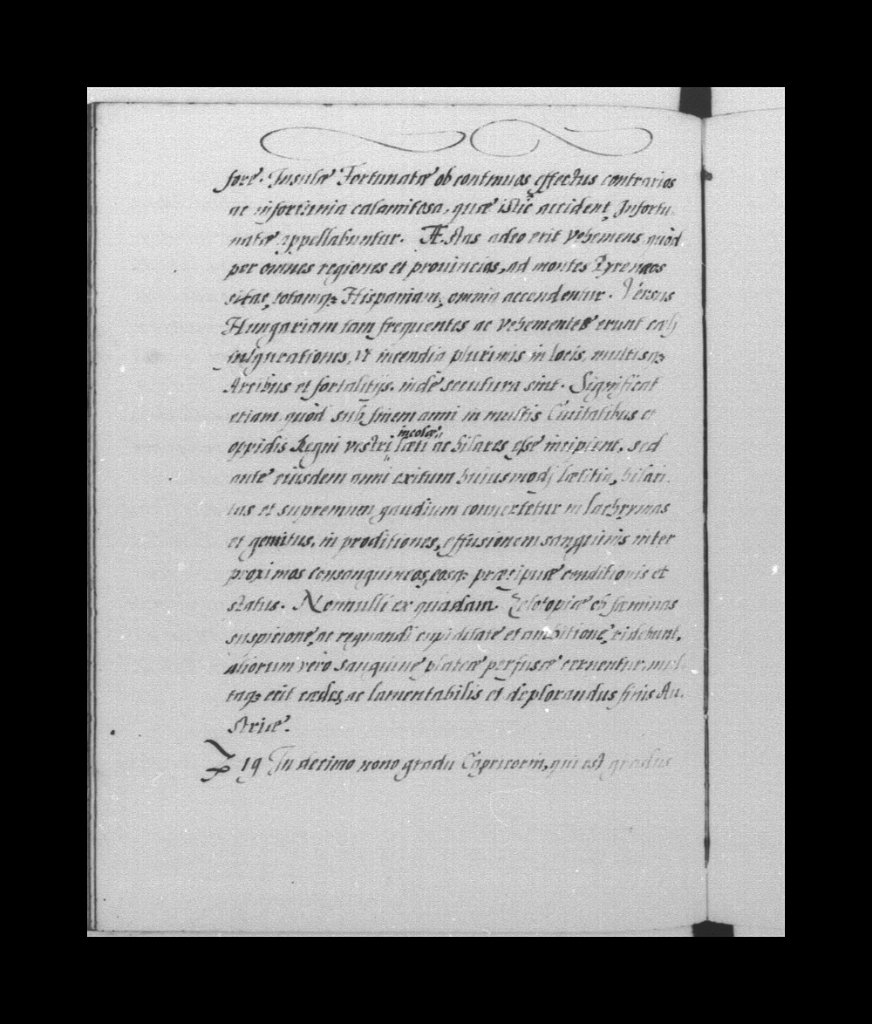 fore. Insulæ Fortunatæ ob continuos effectus contrarios
ac infortunia calamitosa, quæ istic accident, Infortu-
natæ appellabuntur. Æstas adeo erit vehemens quòd
per omnes regiones et prouincias, ad montes Pyreneos
sitas, totamq; Hispaniam, omnia accendentur. Versus
Hungariam tam frequentes ac vehementes erunt cæli
fulgurationes, vt incendia plurimis in locis, multisq;
Arcibus et fortalitijs inde secutura sint. Significat
etiam quòd sub finem anni in multis Ciuitatibus et
oppidis Regni vestri incolæ læti ac hilares esse incipient, sed
ante eiusdem anni exitum huiusmodj lætitia, hilari-
tas et supremum gaudium conuertetur in lachrymas
et gemitus, in proditiones, effusionem sanguinis inter
proximos consanguineos, eosq; præcipuæ conditionis et
status. Nonnulli ex quadam Zelotopiæ ob fæminas
suspicione, ac regnandi cupiditate et ambitione, ridebunt,
aliorum vero sanguine plateæ perfusæ cernentur, mul-
taq; erit cædes, ac lamentabilis et deplorandus finis Au-
striæ.
19 In decimo nono gradu Capricorni, qui est gradus